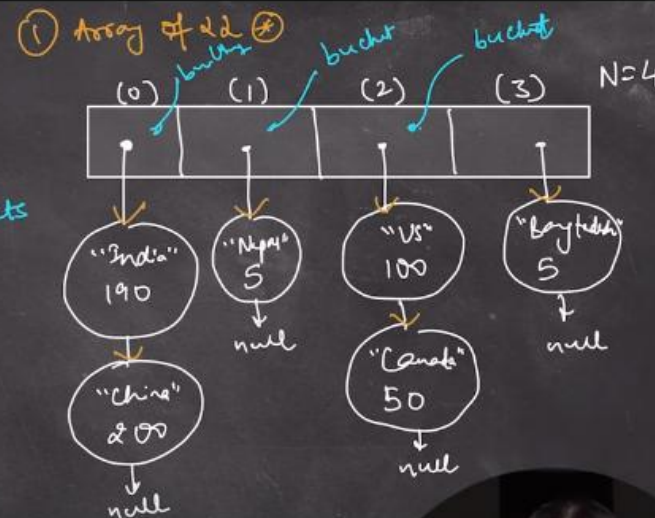 ① Array of LL *
bucket
bucket
bucket
(0) (1) (2) (3) N=4
ts
"India"
190
"Nepal"
5
"US"
100
"Bangladesh"
5
null
null
"China"
200
"Canada"
50
null
null